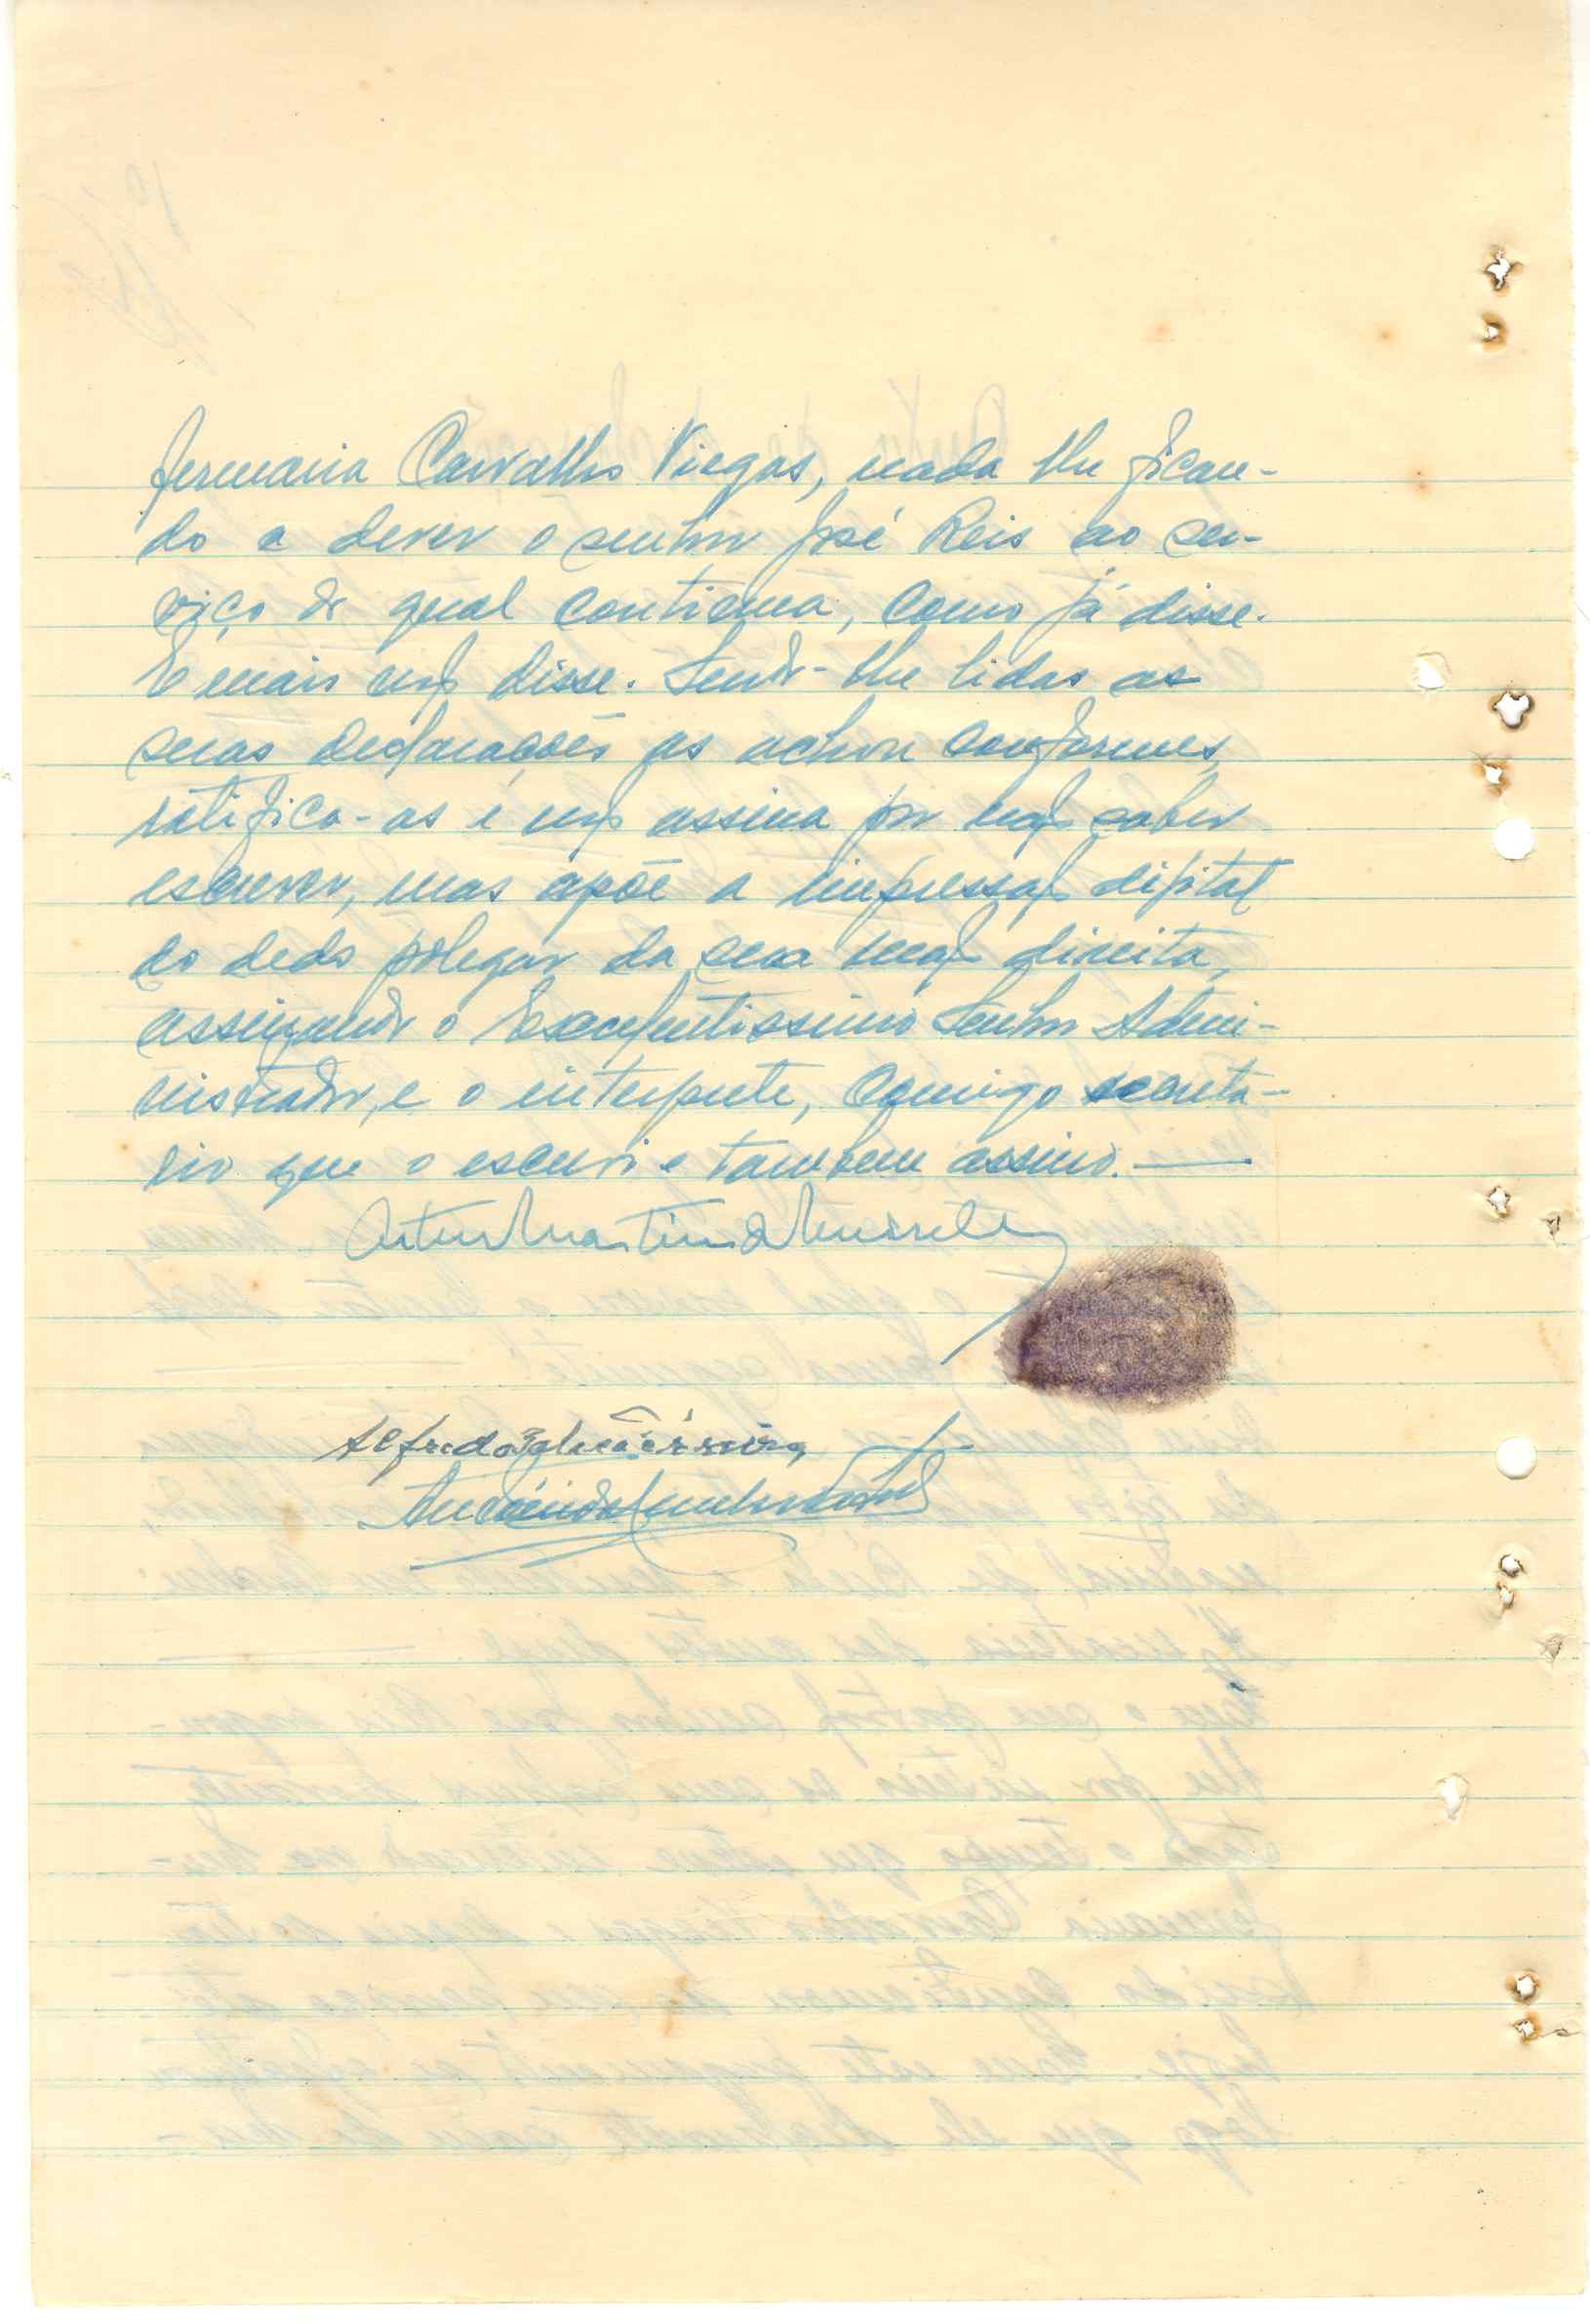 fermaria Carvalho Viegas, nada lhe fican-
do a dever o senhor José Reis ao ser-
viço do qual continua, como já disse.
E mais não disse. Sendo-lhe lidas as
suas declarações as achou conformes,
ratifica-as e não assina por não saber
escrever, mas apõe a impressão digital
do dedo polegar da sua mão direita,
assinando o Excelentissimo Senhor Admi-
nistrador, e o interprete, comigo secretá-
rio que o escrevi e tambem assino.
Artur Martins de Meireles
Alfredo